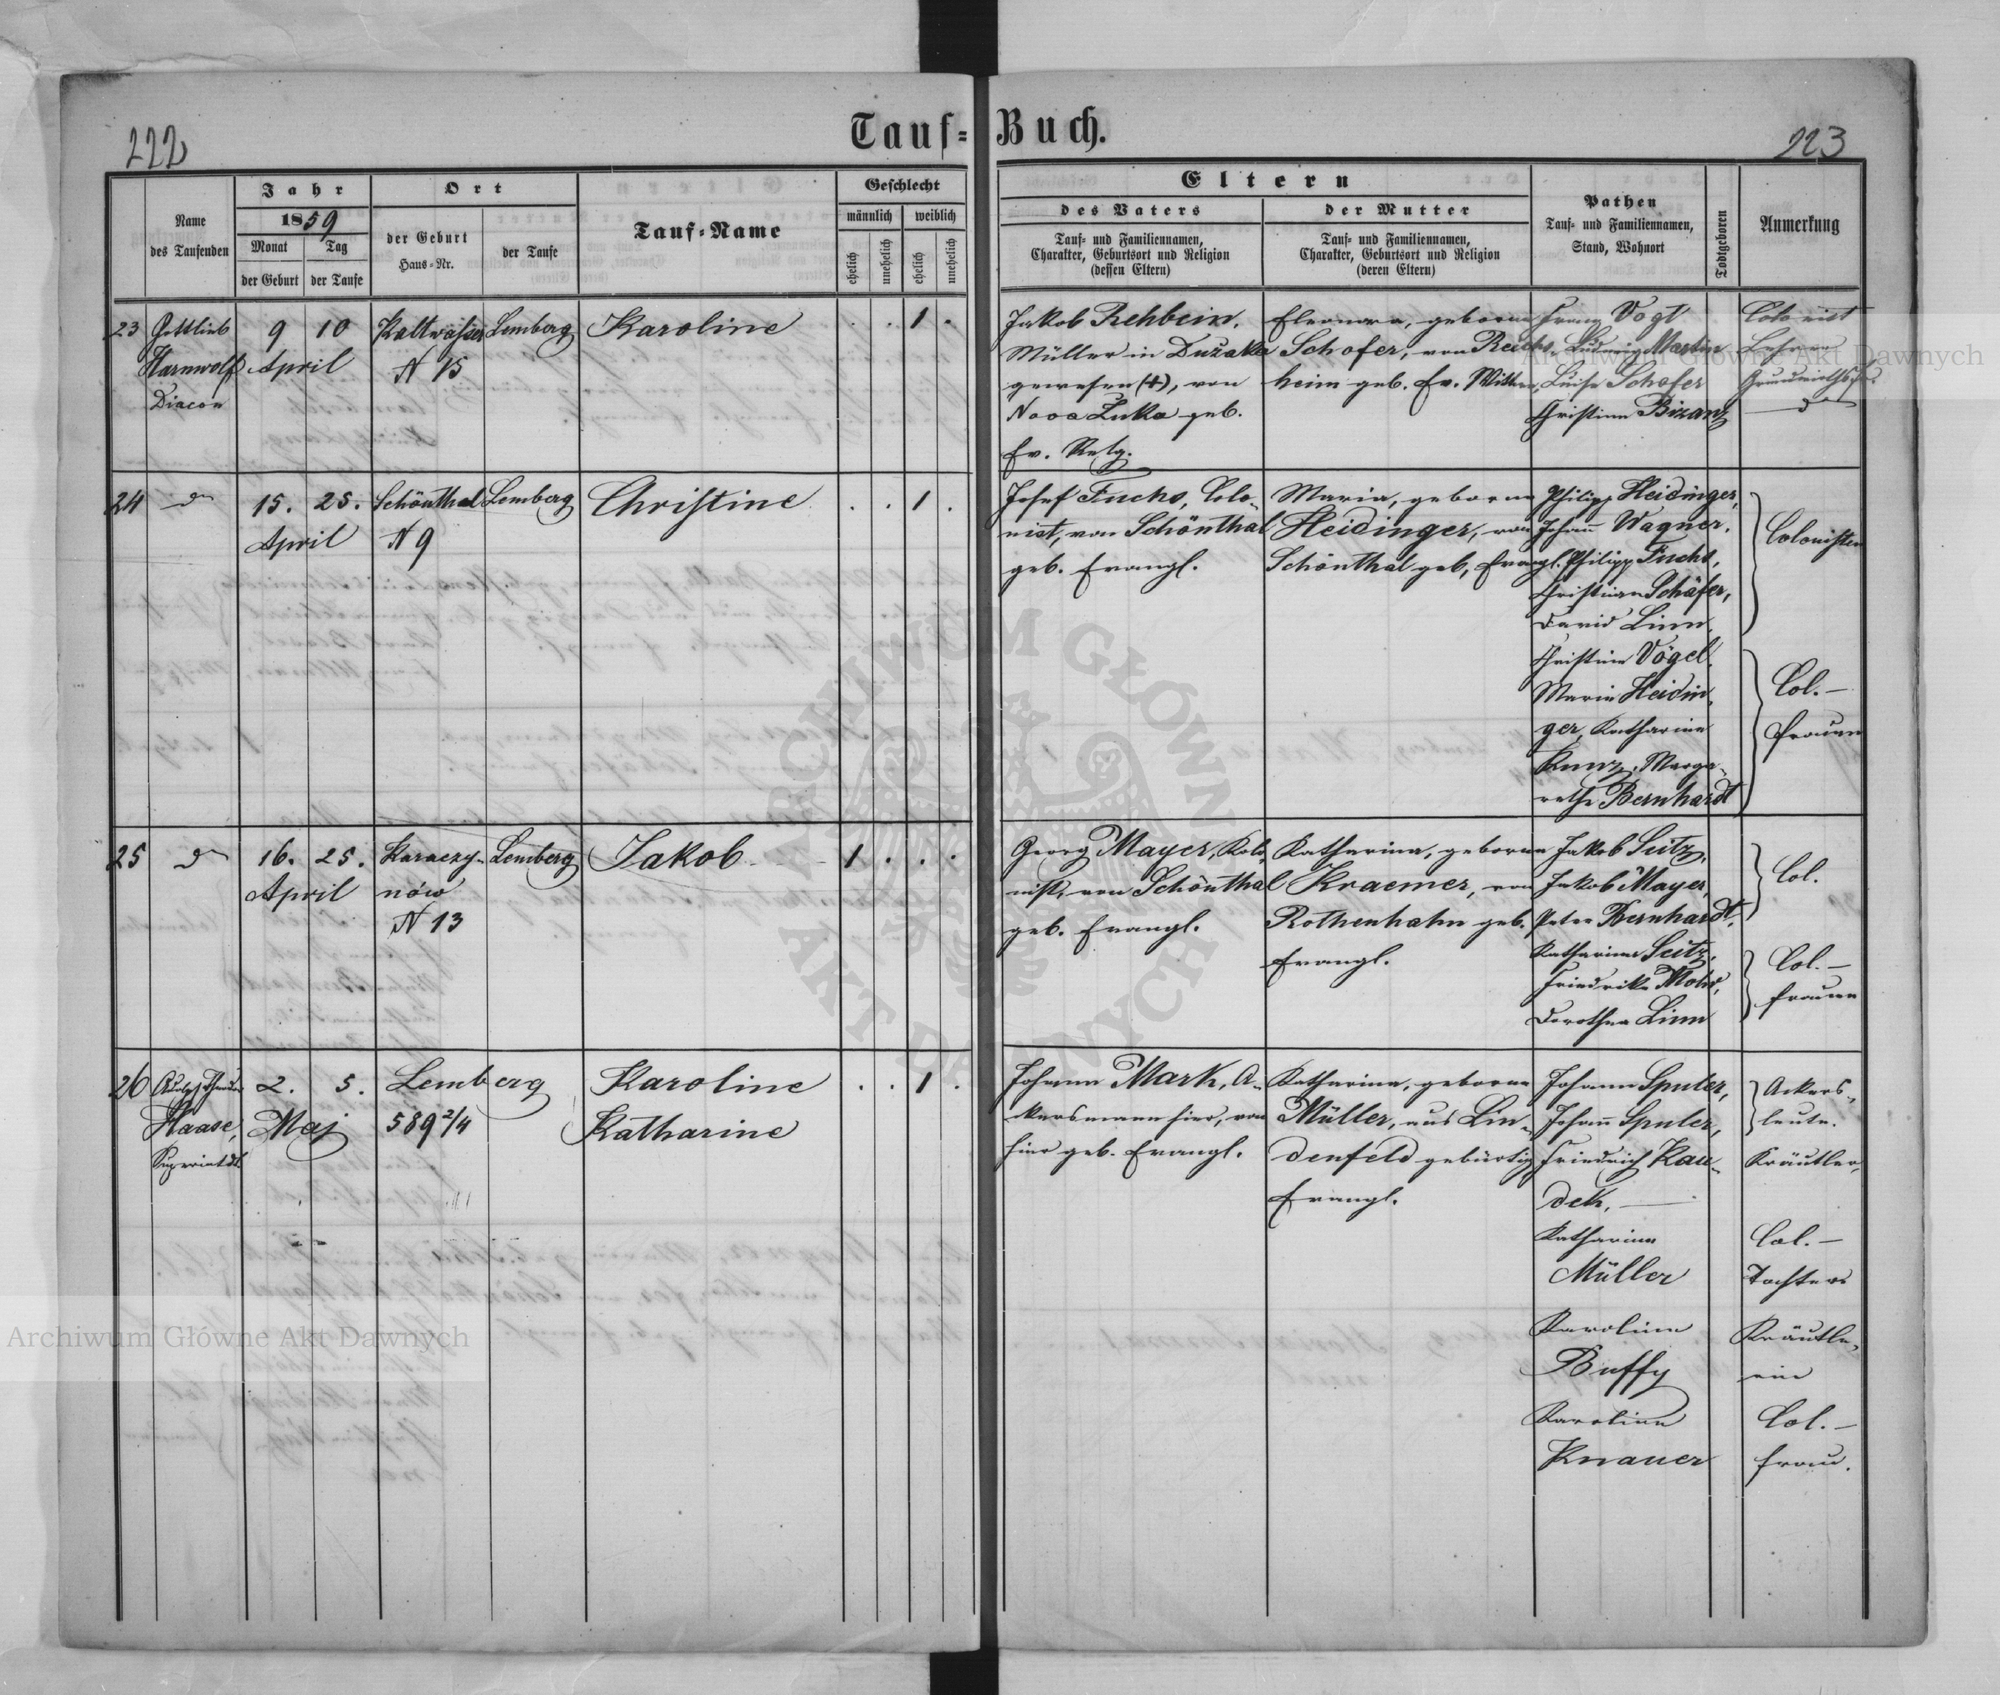 222
Tauf-Buch.
223
Name
des Taufenden
Jahr
1859
Monat
Tag
der Geburt
der Taufe
Ort
der Geburt
Haus-Nr.
der Taufe
Tauf-Name
Geschlecht
männlich
weiblich
ehelich
unehelich
ehelich
unehelich
Eltern
des Vaters
Tauf- und Familiennamen,
Charakter, Geburtsort und Religion
(dessen Eltern)
der Mutter
Tauf- und Familiennamen,
Charakter, Geburtsort und Religion
(deren Eltern)
Pathen
Tauf- und Familiennamen,
Stand, Wohnort
Todtgeboren
Anmerkung
23
Gottlieb
Harnwolf
Diacon
9 10
April
Kaltwasser
N 15
Lemberg
Karoline
1
Jakob Rehbein,
Müller in
gewesen (+), von
Nova Luka geb.
Ev. Relg.
Eleonora, geborne
Schofer, von Reichs-
heim geb. Ev.
Franz Vogt
Ludwig Martin
Luise Schofer
Christine Bizanz
Colonist
Lehrer
do
24
do
15. 25.
April
Schönthal
N 9
Lemberg
Christine
1
Josef Fuchs, Colo-
nist, von Schönthal
geb. Evangl.
Maria, geborne
Heidinger, von
Schönthal geb, Evangl.
Philipp Heidinger,
Johann Wagner,
Philipp Fuchs,
Christian Schäfer,
David Linn,
Christine Vogel,
Maria Heidin-
ger, Katharine
Kunz, Marga-
rethe Bernhardt
Colonisten
Col. -
Frauen
25
do
16. 25.
April
Karaczy-
nów
N 13
Lemberg
Jakob
1
Georg Mayer, Kolo-
nist, von Schönthal
geb. Evangl.
Katharina, geborne
Kraemer, von
Rothenhahn geb.
Evangl.
Jakob Seitz,
Jakob Mayer,
Peter Bernhardt,
Katharina Seitz,
Friedrike Mohr,
Dorothea Linn
Col.
Col. -
frauen
26
Adolf Theodor
Haase,
Superintdt.
2. 5.
Maj
Lemberg
589 2/4
Karoline
Katharine
1
Johann Mark, A-
ckersmann hier, von
hier geb. Evangl.
Katharina, geborne
Müller, aus Lin-
denfeld gebürtig
Evangl.
Johann Spuler,
Johann Spuler,
Friedrich Kau-
dek,
Katharina
Müller
Karoline
Buffy
Karoline
Knauer
Ackers-
leute.
Kräutler,
Col. -
Tochter
Kräutle-
rin
Col. -
frau.
Archiwum Główne Akt Dawnych
ARCHIWUM GŁÓWNE
AKT DAWNYCH
Archiwum Główne Akt Dawnych